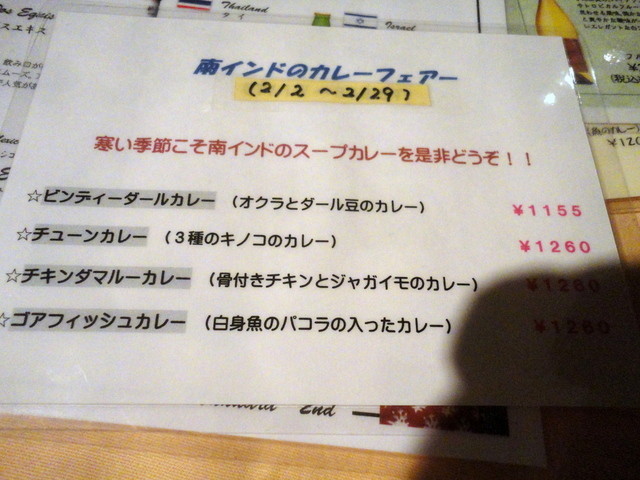 Thailand
タイ
Israel
スエキス
南インドのカレーフェアー
(2/2 ～2/29)
寒い季節こそ南インドのスープカレーを是非どうぞ！！
☆ビンティーダールカレー （オクラとダール豆のカレー） ￥1155
☆チューンカレー （３種のキノコのカレー） ￥1260
☆チキンダマルーカレー （骨付きチキンとジャガイモのカレー） ￥1260
☆ゴアフィッシュカレー （白身魚のパコラの入ったカレー） ￥1260
End